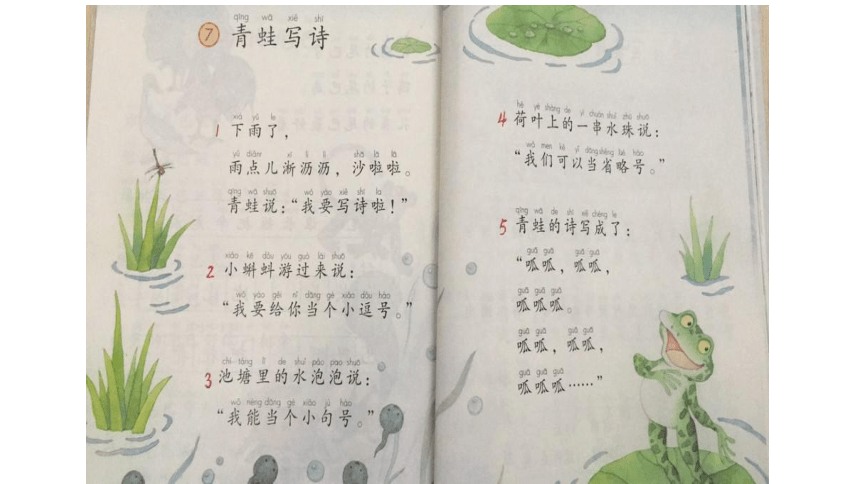 qīng wā xiě shī
7 青蛙写诗
xià yǔ le
1 下雨了，
yǔ diǎnr xī lì lì shā lā lā
雨点儿淅沥沥，沙啦啦。
qīng wā shuō wǒ yào xiě shī la
青蛙说：“我要写诗啦！”
xiǎo kē dǒu yóu guò lái shuō
2 小蝌蚪游过来说：
wǒ yào gěi nǐ dāng gè xiǎo dòu hào
“我要给你当个小逗号。”
chí táng lǐ de shuǐ pào pao shuō
3 池塘里的水泡泡说：
wǒ néng dāng gè xiǎo jù hào
“我能当个小句号。”
hé yè shàng de yí chuàn shuǐ zhū shuō
4 荷叶上的一串水珠说：
wǒ men kě yǐ dāng shěng lüè hào
“我们可以当省略号。”
qīng wā de shī xiě chéng le
5 青蛙的诗写成了：
guā guā guā guā
“呱呱，呱呱，
guā guā guā
呱呱呱。
guā guā guā guā
呱呱，呱呱，
guā guā guā
呱呱呱……”